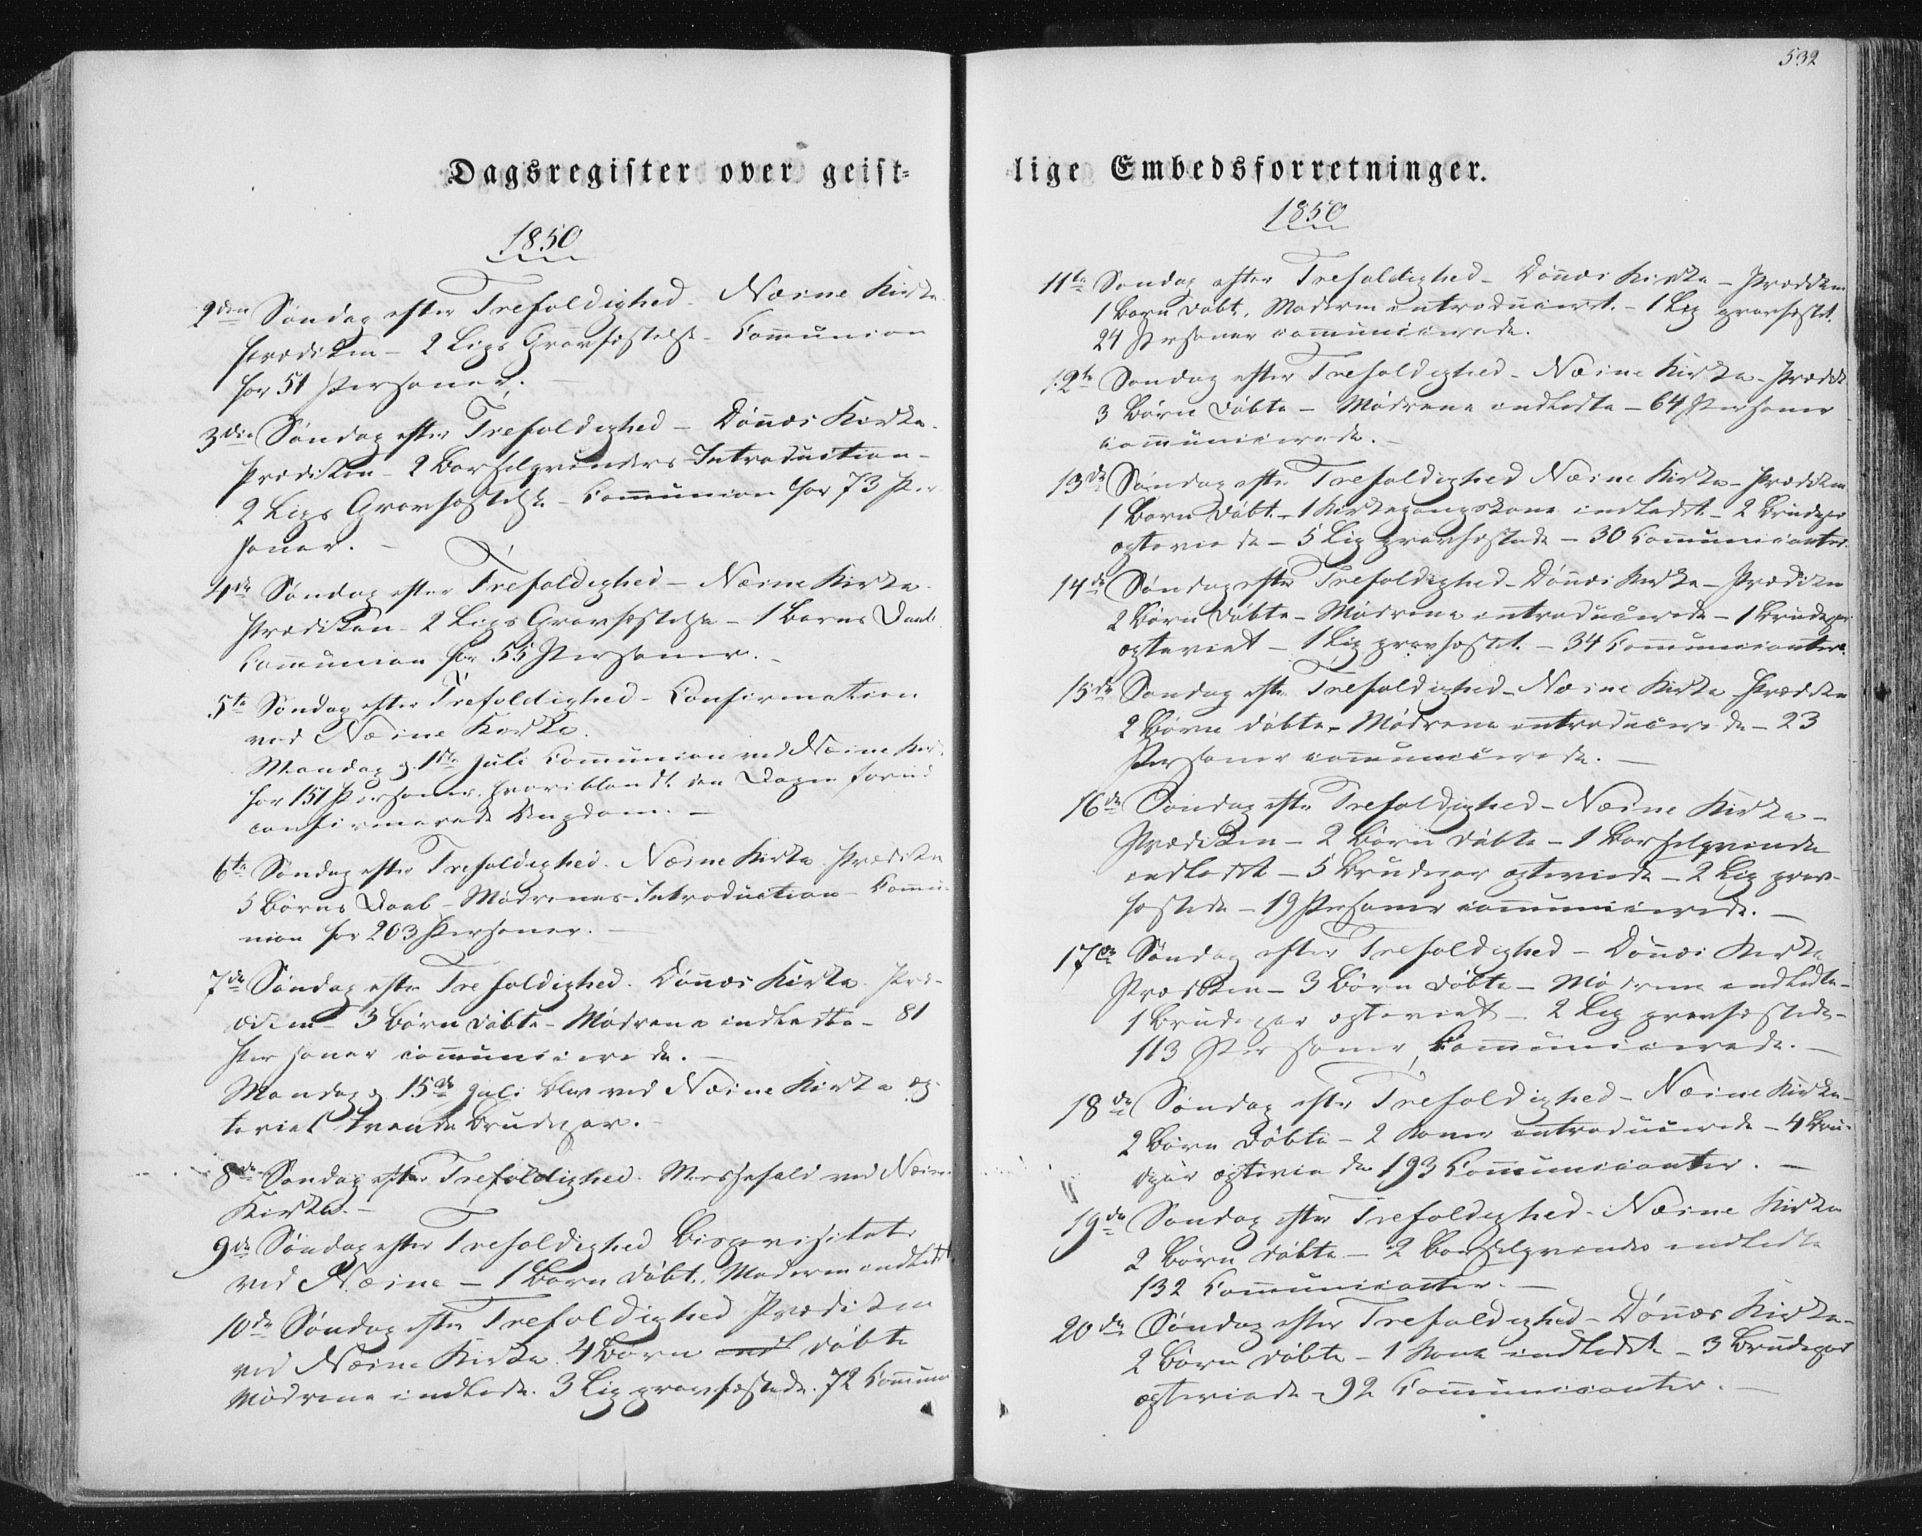 532
Dagsregister over geist-
1850
2den Søndag efter Trefoldighed - Næsne Kirke
Prædiken - 2 Ligs Gravfæstelse - Communion
for 51 Personer. -
3die Søndag efter Trefoldighed - Dönnæs Kirke.
Prædiken - 2 Barselqvinders Introduction -
2 Ligs Gravfæstelse - Communion for 73 Per-
soner. -
4de Søndag efter Trefoldighed - Næsne Kirke
Prædiken - 2 Ligs Gravfæstelse - 1 Barns Daab
Communion for 55 Personer. -
5te Søndag efter Trefoldighed - Confirmation
ved Næsne Kirke.
Mandag d. 1ste Juli Communion ved Næsne Kirke
for 151 Personer, hvoriblandt den Dagen forud
confirmerede Ungdom. -
6te Søndag efter Trefoldighed. Næsne Kirke. Prædiken
5 Børns Daab - Mødrenes Introduction - Commu-
nion for 203 Personer. -
7de Søndag efter Trefoldighed. Dönnæs Kirke. Præ-
diken - 3 Børn døbte - Mødrene indledte - 81
Personer communicerede. -
Mandag d. 15de Juli blev ved Næsne Kirke æg-
teviet trende Brudepar. -
8de Søndag efter Trefoldighed. Messefald ved Næsne
Kirke. -
9de Søndag efter Trefoldighed Bispevisitats
ved Næsne - 1 Barn døbt. Moderen indledt
10de Søndag efter Trefoldighed Prædiken
ved Næsne Kirke. 4 Børn døbte
Mødrene indledte. 3 Lig gravfæstede. 72 Commun
lige Embedsforretninger.
1850
11te Søndag efter Trefoldighed - Dönnæs Kirke - Prædiken
1 Barn døbt, Moderen introduceret. - 1 Lig gravfæstet.
24 Personer communicerede.
12te Søndag efter Trefoldighed - Næsne Kirke - Prædik
3 Børn døbte - Mødrene indledte - 64 Personer
communicerede. -
13de Søndag efter Trefoldighed Næsne Kirke - Prædiken
1 Barn døbt - 1 Kirkegangskone indledt - 2 Brudepar
ægteviede - 5 Lig gravfæstede - 30 Communicanter.
14de Søndag efter Trefoldighed - Dönnæs Kirke - Prædiken
2 Børn døbte - Mødrene introducerede - 1 Brudepar
ægteviet - 1 Lig gravfæstet - 34 Communicanter.
15de Søndag efter Trefoldighed - Næsne Kirke Prædiken
2 Børn døbte - Mødrene introducerede - 23
Personer communicerede. -
16de Søndag efter Trefoldighed - Næsne Kirke -
Prædiken - 2 Børn døbte - 1 Barselqvinde
indledt - 5 Brudepar ægteviede - 2 Lig grav-
fæstede - 19 Personer communicerede. -
17de Søndag efter Trefoldighed - Dönnæs Kirke
Prædiken - 3 Børn døbte - Mødrene indledte -
1 Brudepar ægteviet - 2 Lig gravfæstede -
113 Personer communicerede. -
18de Søndag efter Trefoldighed - Næsne Kirke -
2 Børn døbte - 2 Koner introducerede - 4 Bru-
depar ægteviede 193 Communicanter. -
19de Søndag efter Trefoldighed - Næsne Kirke
2 Børn døbte - 2 Barselqvinder indledte
132 Communicanter. -
20de Søndag efter Trefoldighed - Dönnæs Kirke -
2 Børn døbte - 1 Kone indledt - 3 Brudepar
ægteviede - 92 Communicanter. -